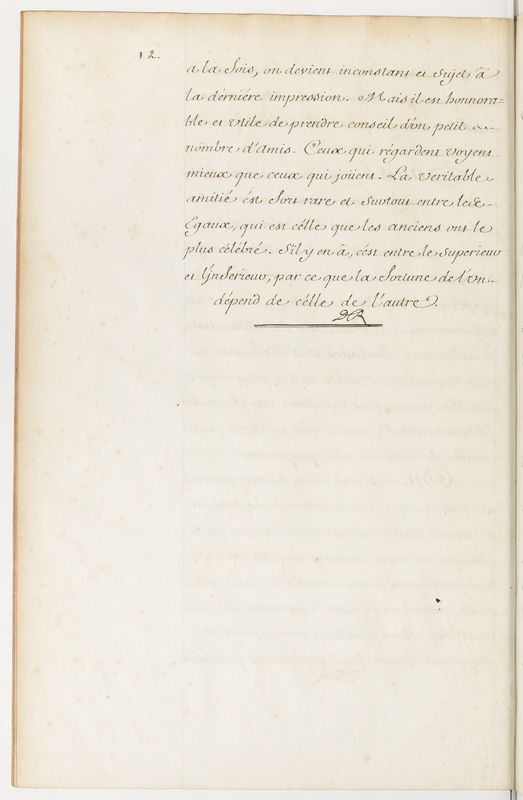 12.
a la fois, on devient inconstant et sujet â
la derniére impression. Mais il est honnora=
ble et utile de prendre conseil d'un petit
nombre d'amis. Ceux qui régardent voyent
mieux que ceux qui joüent. La veritable
amitié ést fort rare et surtout entre les
Egaux, qui est célle que les anciens ont le
plus célébré. S'il y en â, c'est entre le superieur
et l'ynferieur, par ce que la fortune de l'un
dépend de célle de l'autre.